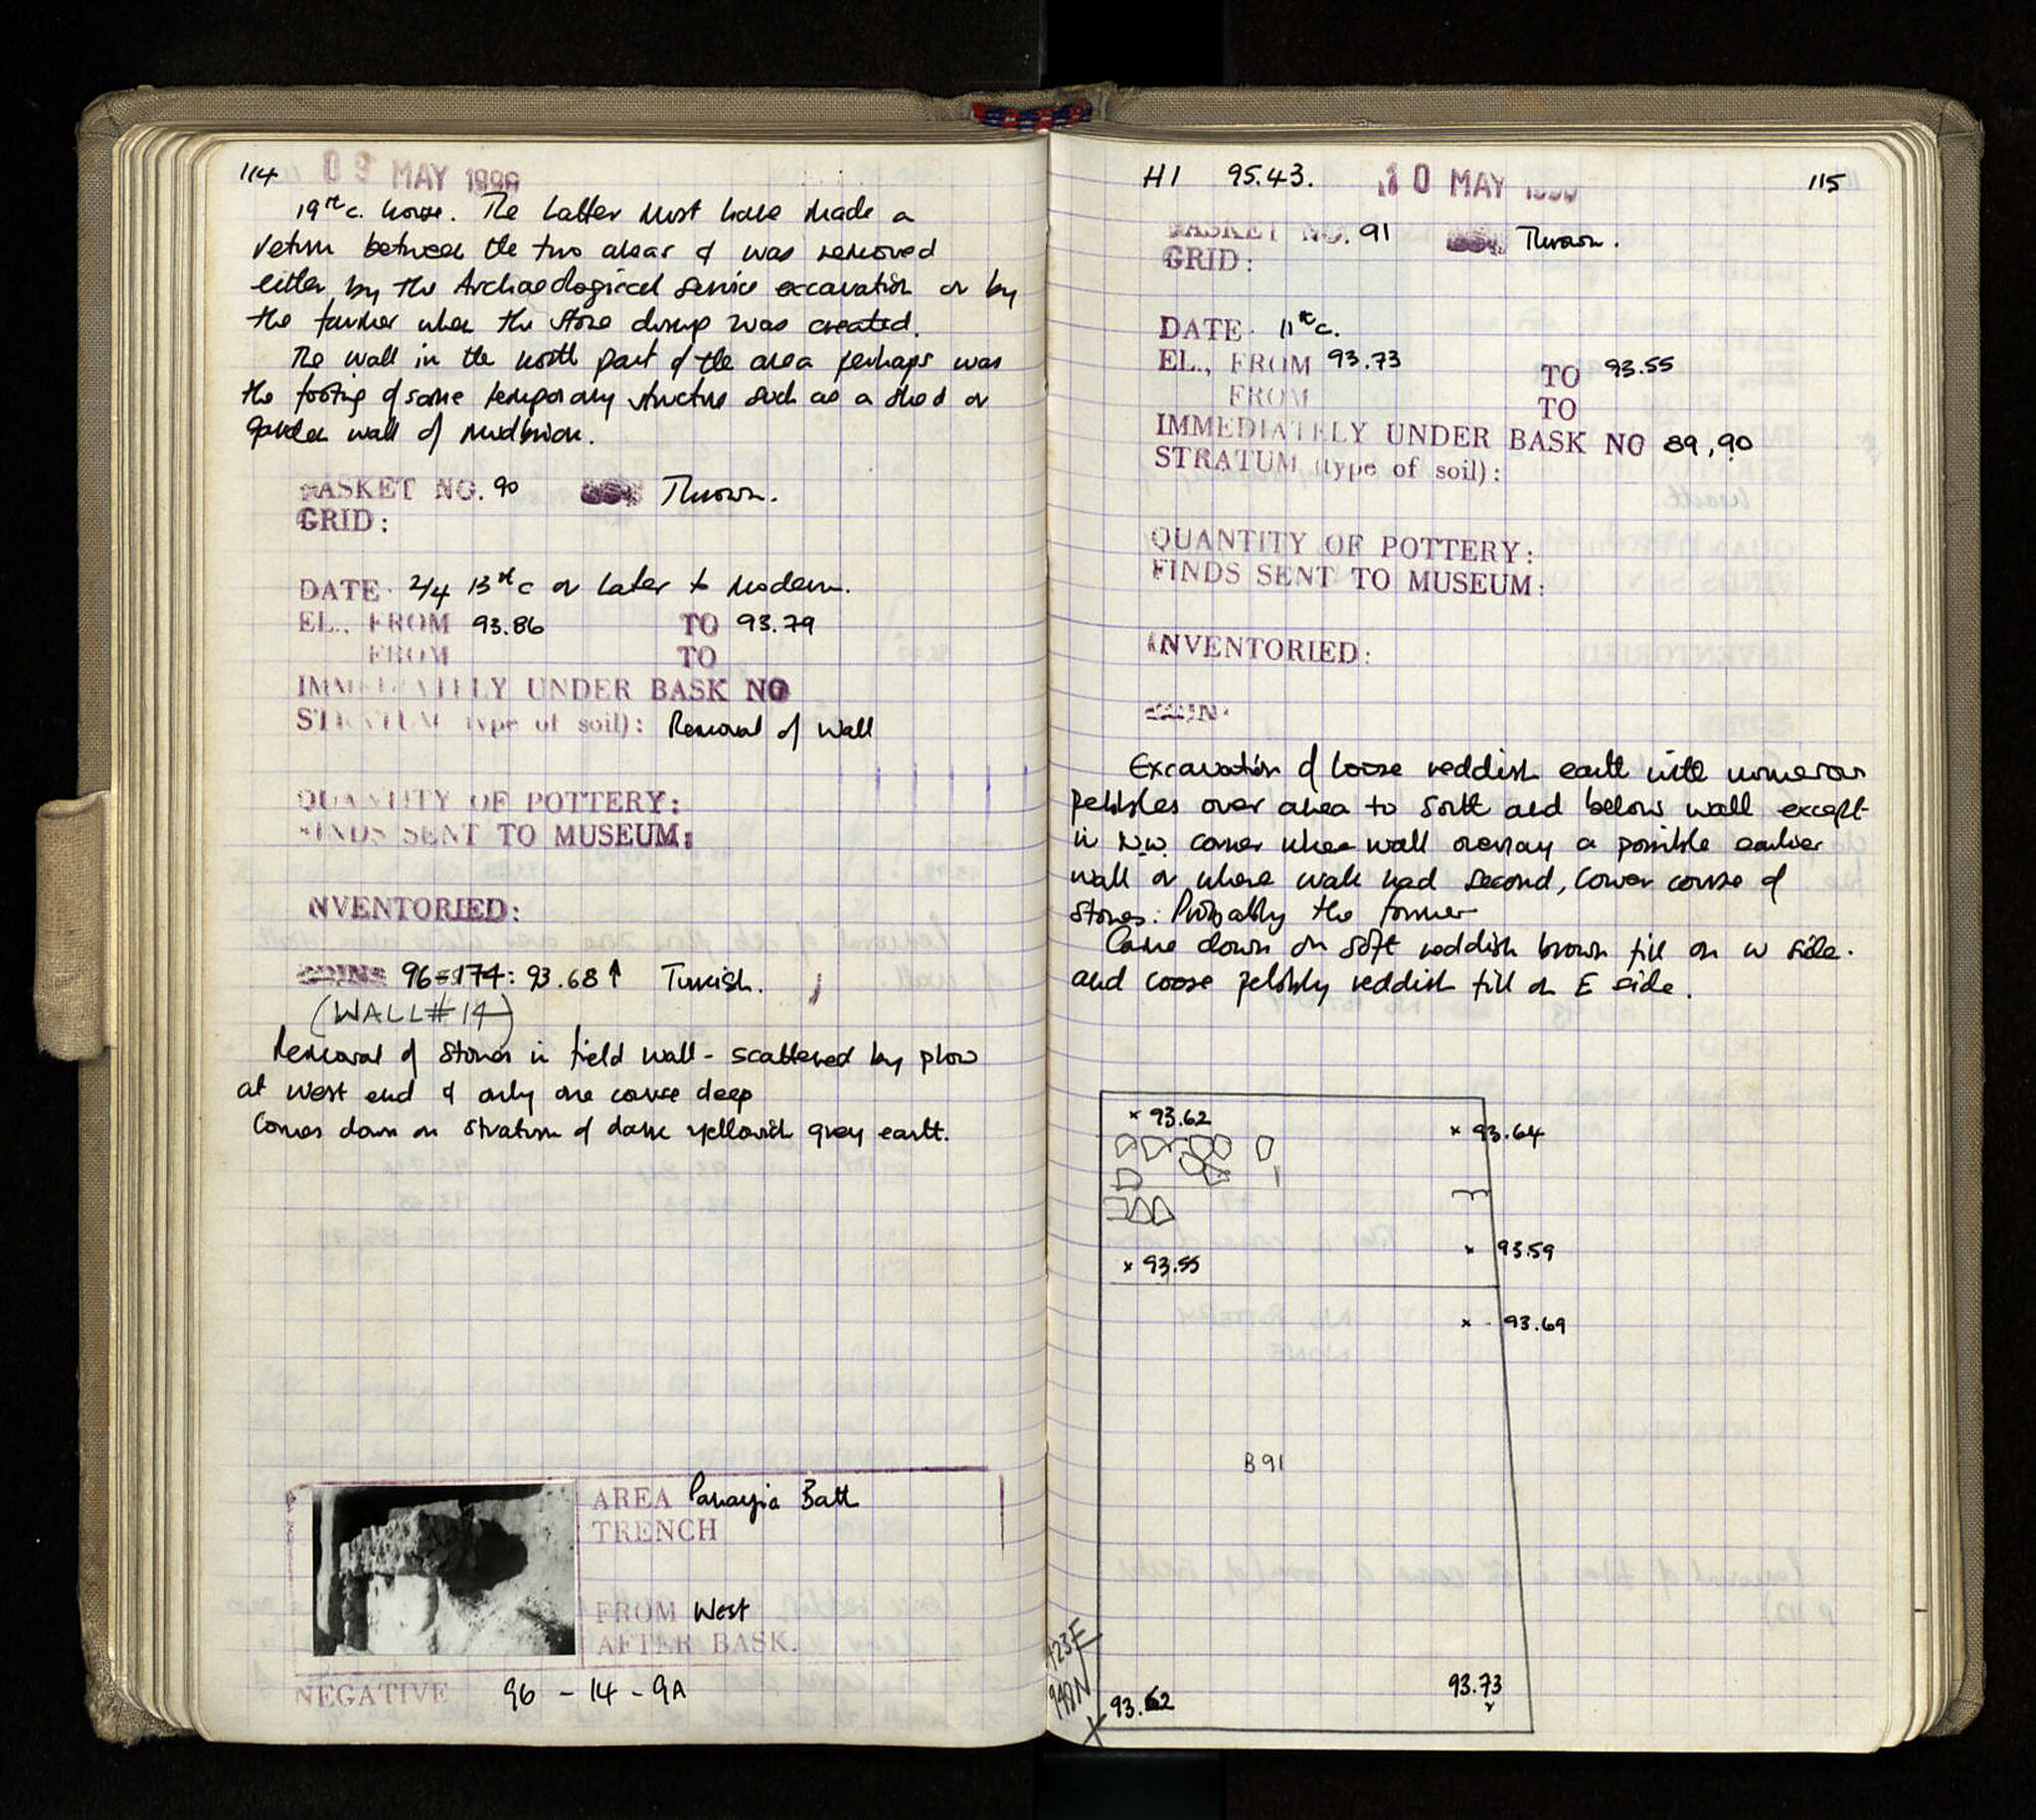 114 09 MAY 1996
19th c. house. The latter must have made a
return between the two areas & was removed
either by the Archaeological Service excavation or by
the farmer when the stone dump was created.
The wall in the north part of the area perhaps was
the footing of some temporary structure such as a shed or
garden wall of mudbrick.
BASKET NO. 90 Thrown.
GRID:
DATE 2/4 13th c or later to modern.
EL., FROM 93.86 TO 93.79
FROM TO
IMMEDIATELY UNDER BASK NO
STRATUM (type of soil): Removal of Wall
QUANTITY OF POTTERY:
FINDS SENT TO MUSEUM:
INVENTORIED:
COINS 96-174: 93.68↑ Turkish.
(WALL #14)
Removal of stones in field wall - scattered by plow
at west end & only one course deep
Comes down on stratum of dark yellowish grey earth.
AREA Panayia Bath
TRENCH
FROM West
AFTER BASK.
NEGATIVE 96 - 14 - 9A
H1 95.43. 10 MAY 1996 115
BASKET NO. 91 Thrown.
GRID:
DATE 11th c.
EL., FROM 93.73 TO 93.55
FROM TO
IMMEDIATELY UNDER BASK NO 89, 90
STRATUM (type of soil):
QUANTITY OF POTTERY:
FINDS SENT TO MUSEUM:
INVENTORIED:
COIN
Excavation of loose reddish earth with numerous
pebbles over area to south and below wall except
in N.W. corner where wall overlay a possible earlier
wall or where wall had second, lower course of
stones. Probably the former
Came down on soft reddish brown fill on W side.
and loose pebbly reddish fill on E side.
× 93.62
× 93.64
× 93.59
× 93.55
× 93.69
B 91
93.73
93.62